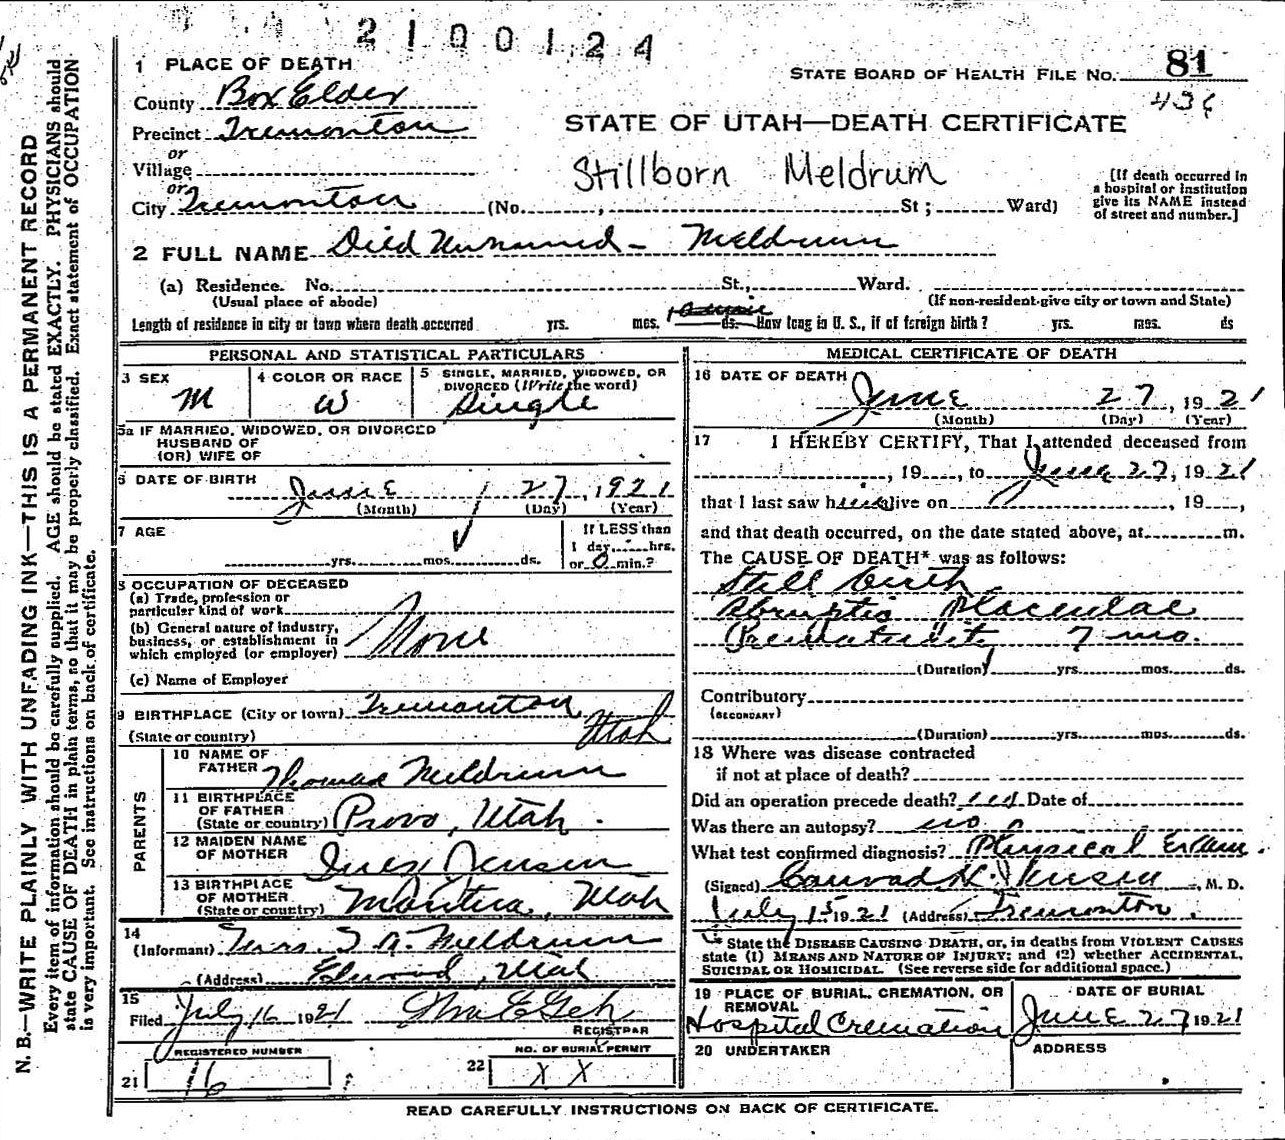 2100124
1 PLACE OF DEATH
STATE BOARD OF HEALTH FILE NO. 81
County Box Elder
Precinct Tremonton
STATE OF UTAH—DEATH CERTIFICATE
or
Village
Stillborn Meldrum
or
City Tremonton (No. , St; Ward)
[If death occurred in
a hospital or institution
give its NAME instead
of street and number.]
2 FULL NAME Died Unnamed - Meldrum
(a) Residence. No. St., Ward.
(Usual place of abode) (If non-resident give city or town and State)
Length of residence in city or town where death occurred yrs. mos. ds. How long in U. S., if of foreign birth? yrs. mos. ds
PERSONAL AND STATISTICAL PARTICULARS
3 SEX
M
4 COLOR OR RACE
W
5 SINGLE, MARRIED, WIDOWED, OR
DIVORCED (Write the word)
Single
5a IF MARRIED, WIDOWED, OR DIVORCED
HUSBAND OF
(OR) WIFE OF
6 DATE OF BIRTH June 27, 1921
(Month) (Day) (Year)
7 AGE
yrs. mos. ds.
If LESS than
1 day, hrs.
or 0 min.?
8 OCCUPATION OF DECEASED
(a) Trade, profession or
particular kind of work
(b) General nature of industry,
business, or establishment in
which employed (or employer) None
(c) Name of Employer
9 BIRTHPLACE (City or town) Tremonton
(State or country) Utah
PARENTS
10 NAME OF
FATHER Thomas Meldrum
11 BIRTHPLACE
OF FATHER
(State or country) Provo, Utah.
12 MAIDEN NAME
OF MOTHER Inez Jensen
13 BIRTHPLACE
OF MOTHER
(State or country) Mantua, Utah
14
(Informant) Mrs. T. A. Meldrum
(Address) Elwood, Utah
15
Filed July 16 1921
REGISTRAR
REGISTERED NUMBER
21 16
NO. OF BURIAL PERMIT
22 X X
MEDICAL CERTIFICATE OF DEATH
16 DATE OF DEATH
June 27, 1921
(Month) (Day) (Year)
17 I HEREBY CERTIFY, That I attended deceased from
, 19 , to June 27, 1921
that I last saw him alive on , 19 ,
and that death occurred, on the date stated above, at m.
The CAUSE OF DEATH* was as follows:
Still birth
Abruptio Placentae
Prematurity 7 mo.
(Duration) yrs. mos. ds.
Contributory
(SECONDARY)
(Duration) yrs. mos. ds.
18 Where was disease contracted
if not at place of death?
Did an operation precede death? Date of
Was there an autopsy? no
What test confirmed diagnosis? Physical Exam.
(Signed) Conrad H. Jensen, M. D.
July 15 1921 (Address) Tremonton.
* State the DISEASE CAUSING DEATH, or, in deaths from VIOLENT CAUSES
state (1) MEANS AND NATURE OF INJURY; and (2) whether ACCIDENTAL,
SUICIDAL OR HOMICIDAL. (See reverse side for additional space.)
19 PLACE OF BURIAL, CREMATION, OR
REMOVAL
Hospital Cremation
DATE OF BURIAL
June 27 1921
20 UNDERTAKER
ADDRESS
READ CAREFULLY INSTRUCTIONS ON BACK OF CERTIFICATE.
N. B.—WRITE PLAINLY WITH UNFADING INK—THIS IS A PERMANENT RECORD
Every item of information should be carefully supplied. AGE should be stated EXACTLY. PHYSICIANS should
state CAUSE OF DEATH in plain terms, so that it may be properly classified. Exact statement of OCCUPATION
is very important. See instructions on back of certificate.